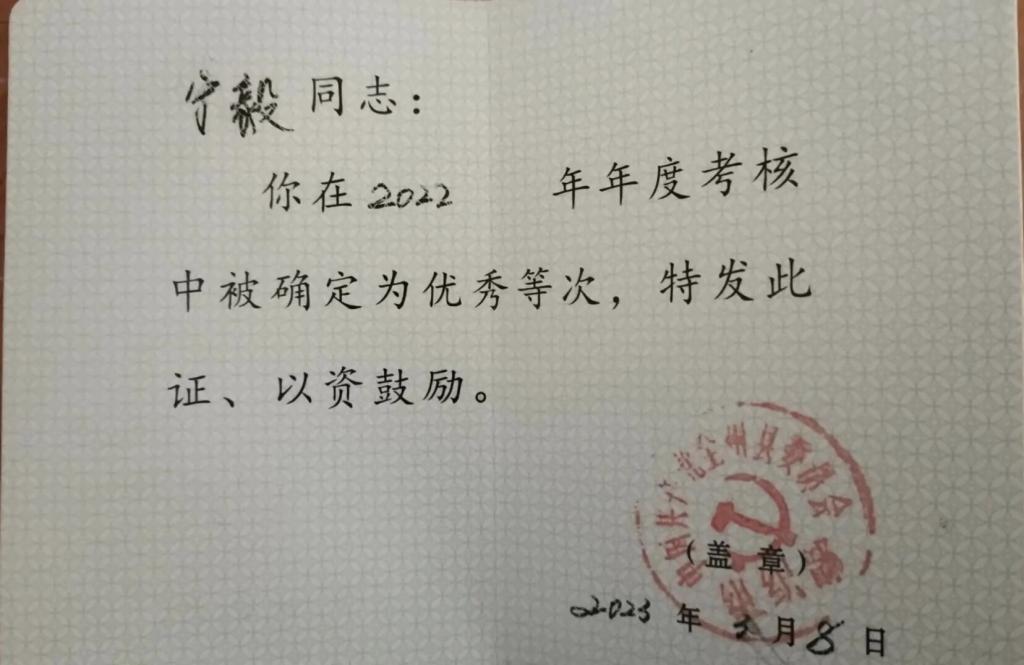 宁毅同志：
你在2022 年年度考核
中被确定为优秀等次，特发此
证、以资鼓励。
中国共产党全州县委员会
（盖章）
2023年3月8日